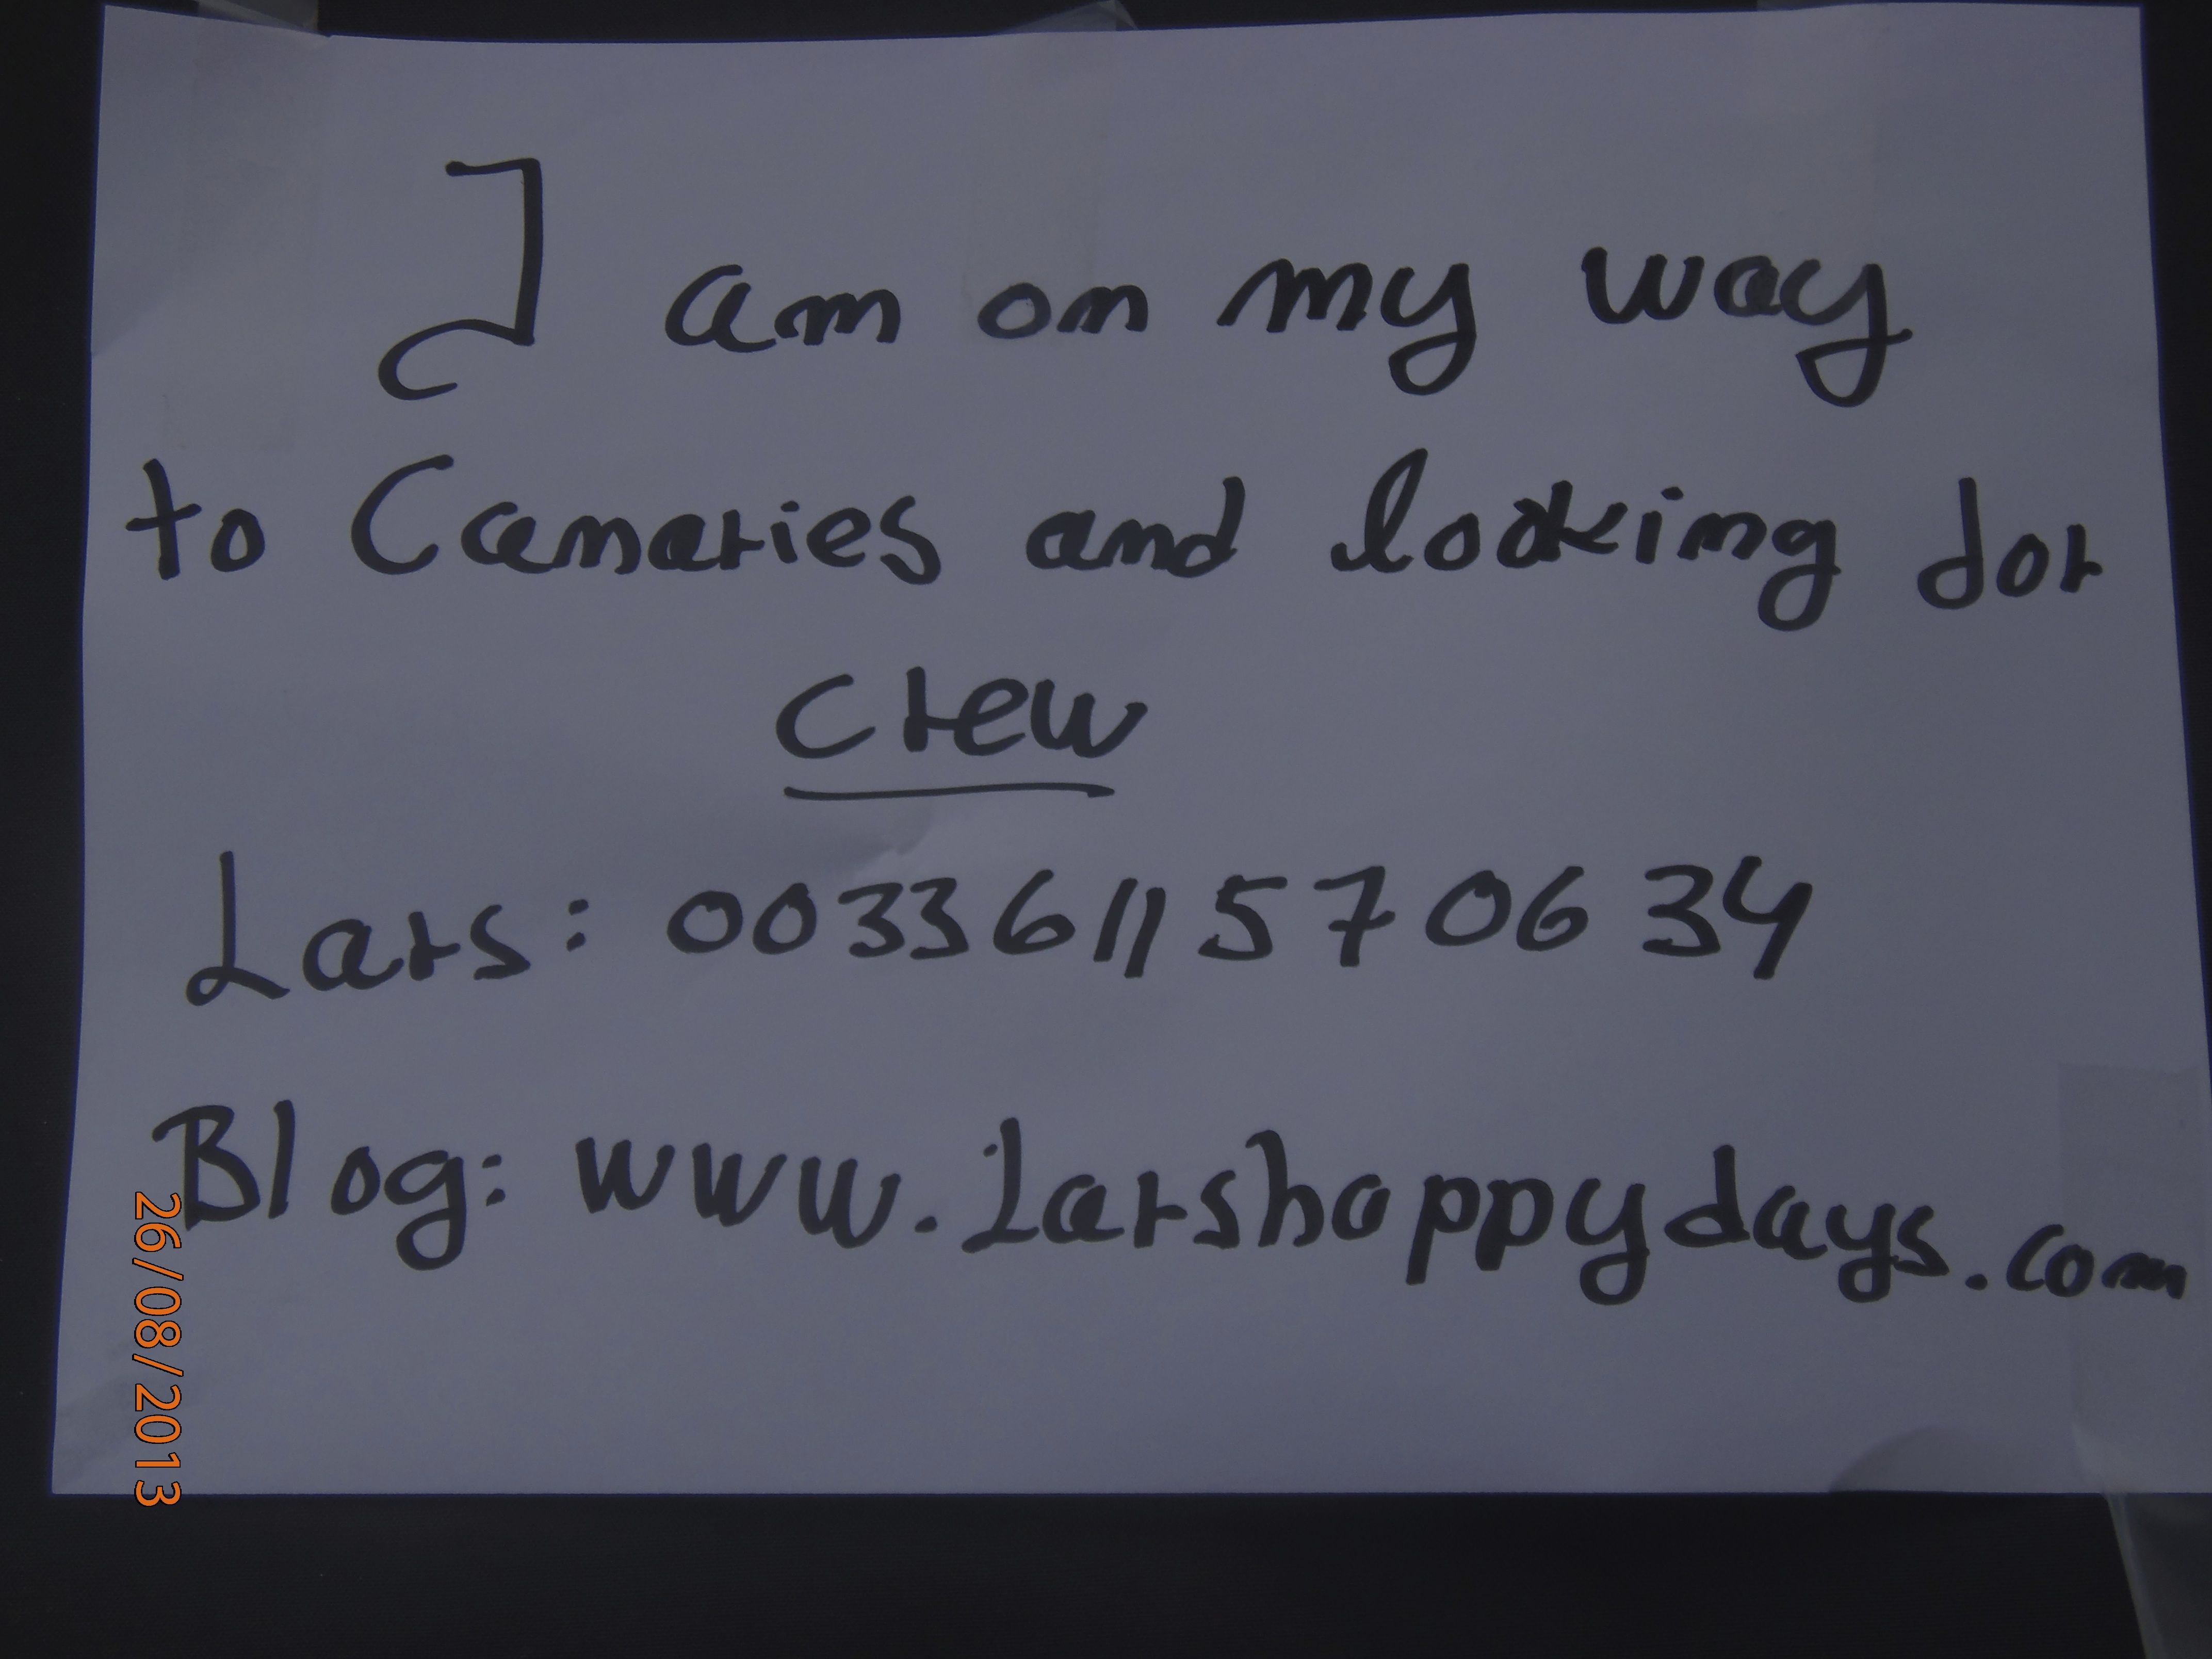 I am on my way
to Canaries and looking for
crew
Lars: 0033611570634
Blog: www.Larshappydays.com
26/08/2013